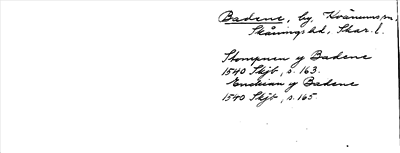 Badene, by, Kvänums sn,
Skånings hd, Skar. l.
Stompnen y Badene
1540 Skjb, s. 163.
Enskian y Badene
1540 Skjb, s. 165.